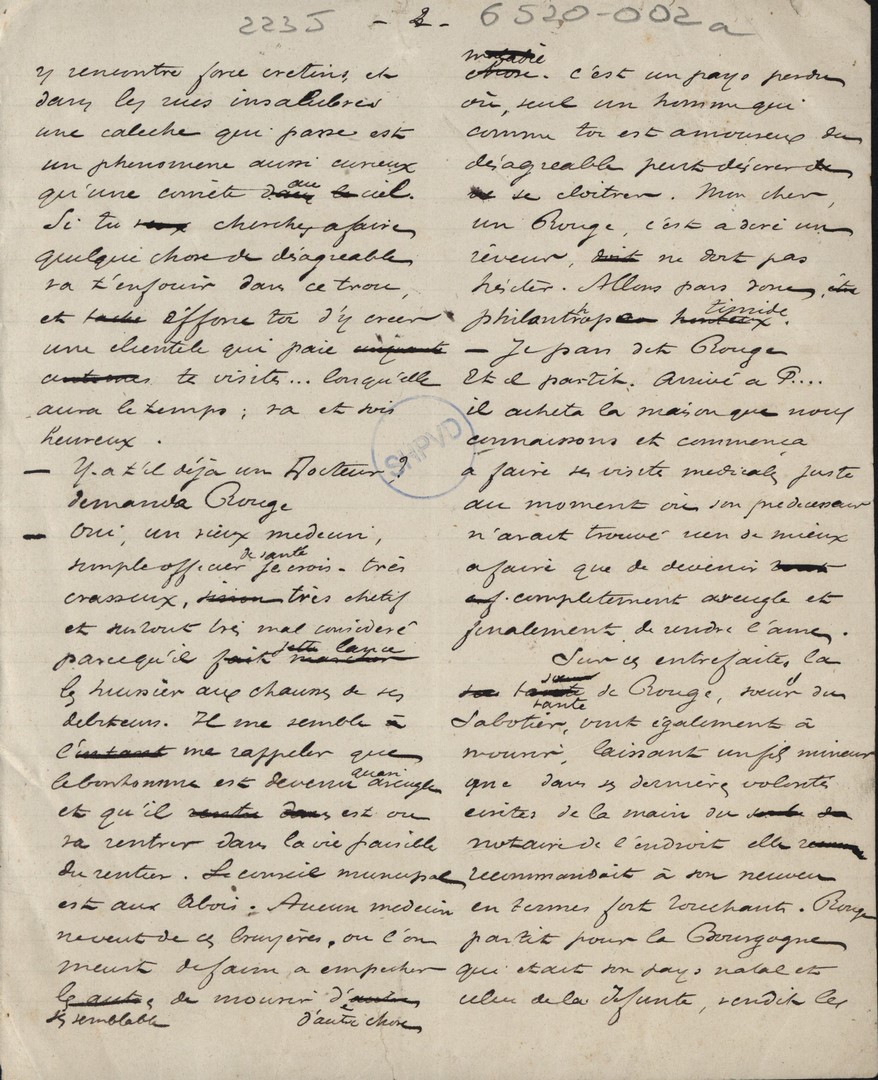 2235 - 2 - 6520-002a
y rencontre force cretins, et
dans les rues insalubres
une caleche qui passe est
un phenomene aussi curieux
qu'une comète dans au le ciel.
Si tu cherches a faire
quelque chose de désagreable
va t'enfouir dans ce trou,
et tache Efforce toi d'y creer
une clientele qui paie
te visites... lorsqu'elle
aura le temps ; va et sois
heureux.
— Y. a t'il déjà un Docteur ?
demanda Rouge
— Oui, un vieux medecin,
simple officier de santé je crois - très
crasseux, très chetif
et surtout tres mal consideré
parcequ'il fait marcher jette lance
les huissier aux chausses de ses
debiteurs. Il me semble à
l'instant me rappeler que
lebonhomme est devenu quasi aveugle
et qu'il rentre dans est ou
va rentrer dans la vie paisible
du rentier. Le conseil municipal
est aux abois. Aucun medecin
ne veut de ces bruyères, ou l'on
meurt de faim a empecher
les autres de mourir d'autre
ses semblable d'autre chose
maladie
chose. c'est un pays perdu
où, seul un homme qui
comme toi est amoureux du
désagreable peut désirer de
se cloitrer. Mon cher,
un Rouge, c'est a dire un
rêveur, doit ne doit pas
hésiter. Allons pars donc, être
philanthrope honteux timide.
— Je pars dit Rouge
Et il partit. Arrivé a P....
il acheta la maison que nous
connaissons et commença
a faire ses visite medicales juste
au moment où son predecesseur
n'avait trouvé rien de mieux
a faire que de devenir tout
completement aveugle et
finalement de rendre l'ame.
Sur ces entrefaites la
sa tante soeur tante de Rouge, soeur du
Sabotier, vint également à
mourir, laissant un fils mineur
que dans ses dernières volontés
ecrites de la main du
notaire de l'endroit elle
recommandait à son neveu
en termes fort touchants. Rouge
partit pour la Bourgogne
qui etait son pays natal et
celui de la défunte, vendit les
SHPVD